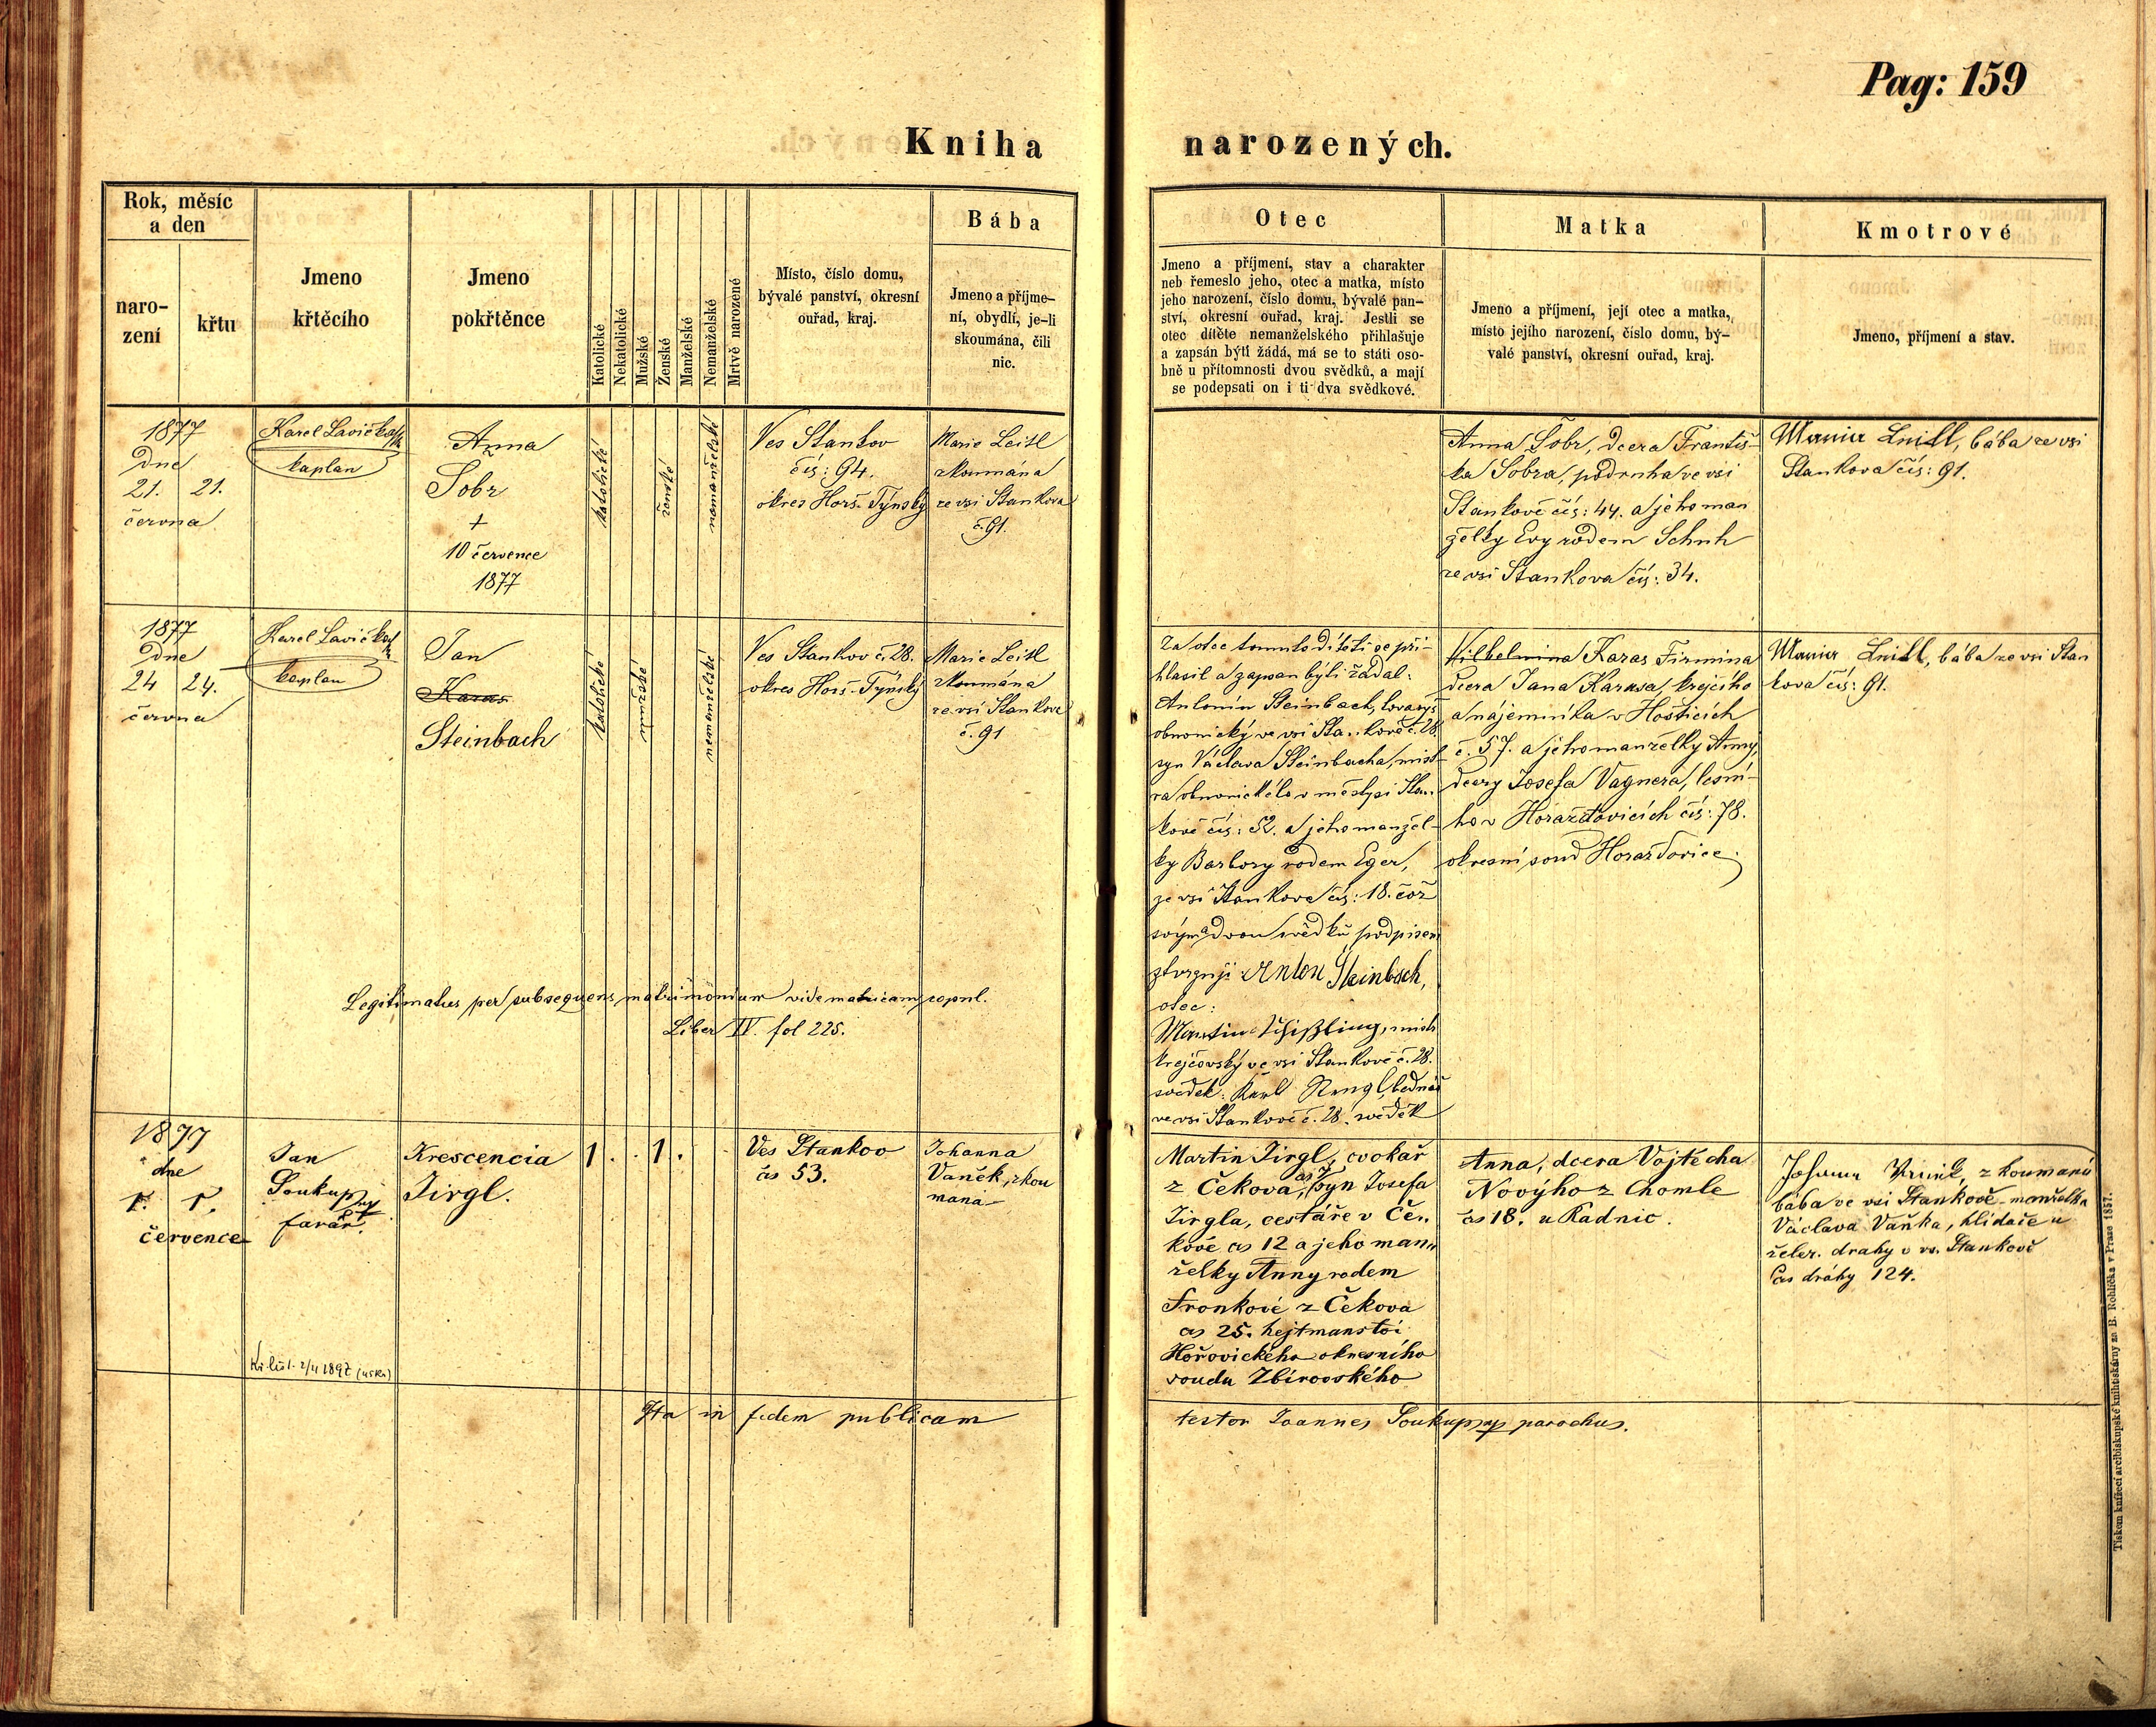 Pag: 159
Kniha narozených.
Rok, měsíc
a den
naro-
zení
křtu
Jmeno
křtěcího
Jmeno
pokřtěnce
Katolické
Nekatolické
Mužské
Ženské
Manželské
Nemanželské
Mrtvě narozené
Místo, číslo domu,
bývalé panství, okresní
ouřad, kraj.
Bába
Jmeno a příjme-
ní, obydlí, je-li
skoumána, čili
nic.
Otec
Jmeno a příjmení, stav a charakter
neb řemeslo jeho, otec a matka, místo
jeho narození, číslo domu, bývalé pan-
ství, okresní ouřad, kraj. Jestli se
otec dítěte nemanželského přihlašuje
a zapsán býti žádá, má se to státi oso-
bně u přítomnosti dvou svědků, a mají
se podepsati on i ti dva svědkové.
Matka
Jmeno a příjmení, její otec a matka,
místo jejího narození, číslo domu, bý-
valé panství, okresní ouřad, kraj.
Kmotrové
Jmeno, příjmení a stav.
1877
Dne
21. 21.
června
Karel Lavička
kaplan
Anna
Sobr
+
10 července
1877
katolické
ženské
nemanželské
Ves Stankov
čís: 94.
okres Horš. Týnský
Marie Leitl
zkoumána
ze vsi Stankova
č. 91.
Anna Sobr, dcera Františ-
ka Sobra, podruha ve vsi
Stankově čís: 44. a jeho man
želky Evy rodem Schuh
ze vsi Stankova čís: 34.
Leitl, bába ze vsi
Stankova čís: 91.
1877
Dne
24 24.
června
Karel Lavička
kaplan
Jan
Karas
Steinbach
katolické
mužské
nemanželské
Ves Stankov č. 28.
okres Horš-Týnský
Marie Leitl
zkoumána
ze vsi Stankova
č. 91
Za otce tomuto dítěti se při-
hlasil a zapsan býti žádal:
Antonín Steinbach, tovaryš
obuvnický ve vsi Stankově č. 28.
syn Václava Steinbacha, mist-
ra obuvnického v městysi Stan-
kově čís: 52. a jeho manžel-
ky Barbory rodem Eger,
ze vsi Stankova čís: 18. což
svým a dvou svědků podpisem
stvrzuje: Anton Steinbach,
otec:
Martin
krejčovský ve vsi Stankově č. 28.
svědek: Karl bednář
ve vsi Stankově č. 28. svědek
Vilhelmina Karas Firmina
dcera Jana Karasa, krejčího
a nájemníka v Hošticích
č. 57. a jeho manželky Anny,
dcery Josefa Vagnera, lesní-
ho v Horažďovicích čís: 78.
okresní soud Horažďovice.
Leitl, bába ze vsi Stan
kova čís: 91.
Legitimatus per subsequens matrimonium vide matricam copul.
Liber IV. fol 225.
1877
dne
1. 1.
července
Jan
Soukup
farář.
Krescencia
Jirgl.
1 . . 1 . .
Ves Stankov
čs 53.
Johanna
Vaněk, zkou
maná
Martin Jirgl, cvokař
z Čekova, syn Josefa
Jirgla, cestáře v Če-
kově čs 12 a jeho man-
želky Anny rodem
Fronkové z Čekova
čs 25. hejtmanství
Hořovického okresního
soudu Zbirovského
Anna, dcera Vojtěcha
Novýho z Chomle
čs 18. u Radnic.
zkoumaná
bába ve vsi Stankově - manželka
Václava Vaňka, hlídače u
želez. drahy v vs. Stankově
čs dráhy 124.
Kř. list. 2/4 1897
Ita in fidem publicam testor Joannes Soukup mp parochus.
Tiskem knížecí arcibiskupské knihtiskárny za B. Rohlíčka v Praze 1857.